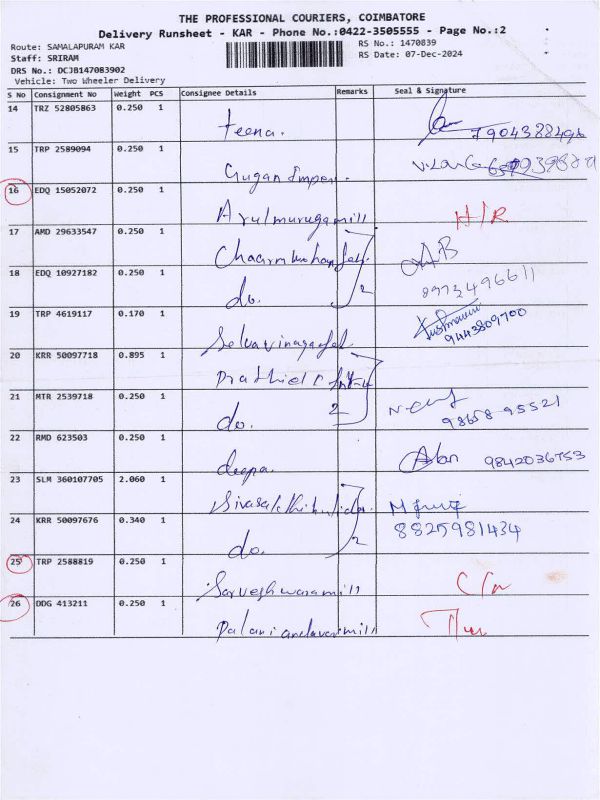 THE PROFESSIONAL COURIERS, COIMBATORE
Delivery Runsheet - KAR - Phone No.:0422-3505555 - Page No.:2
Route: SAMALAPURAM KAR
RS No.: 1470839
Staff: SRIRAM
RS Date: 07-Dec-2024
DRS No.: DCJB147083902
Vehicle: Two Wheeler Delivery
S No Consignment No Weight PCS Consignee Details Remarks Seal & Signature
14 TRZ 52805863 0.250 1 teena. 7904388496
15 TRP 2589094 0.250 1 Gugan Impex.
16 EDQ 15052072 0.250 1 Arulmurugamill H/R
17 AMD 29633547 0.250 1
18 EDQ 10927182 0.250 1 do. 2 8973496611
19 TRP 4619117 0.170 1 9443809700
20 KRR 50097718 0.895 1
21 MTR 2539718 0.250 1 do. 2 98658-95521
22 RMD 623503 0.250 1 deepa. 9842036753
23 SLM 360107705 2.060 1
24 KRR 50097676 0.340 1 do. 2 8825981434
25 TRP 2588819 0.250 1 Sarveshwaramill
26 DDG 413211 0.250 1 Palaniandavarmill